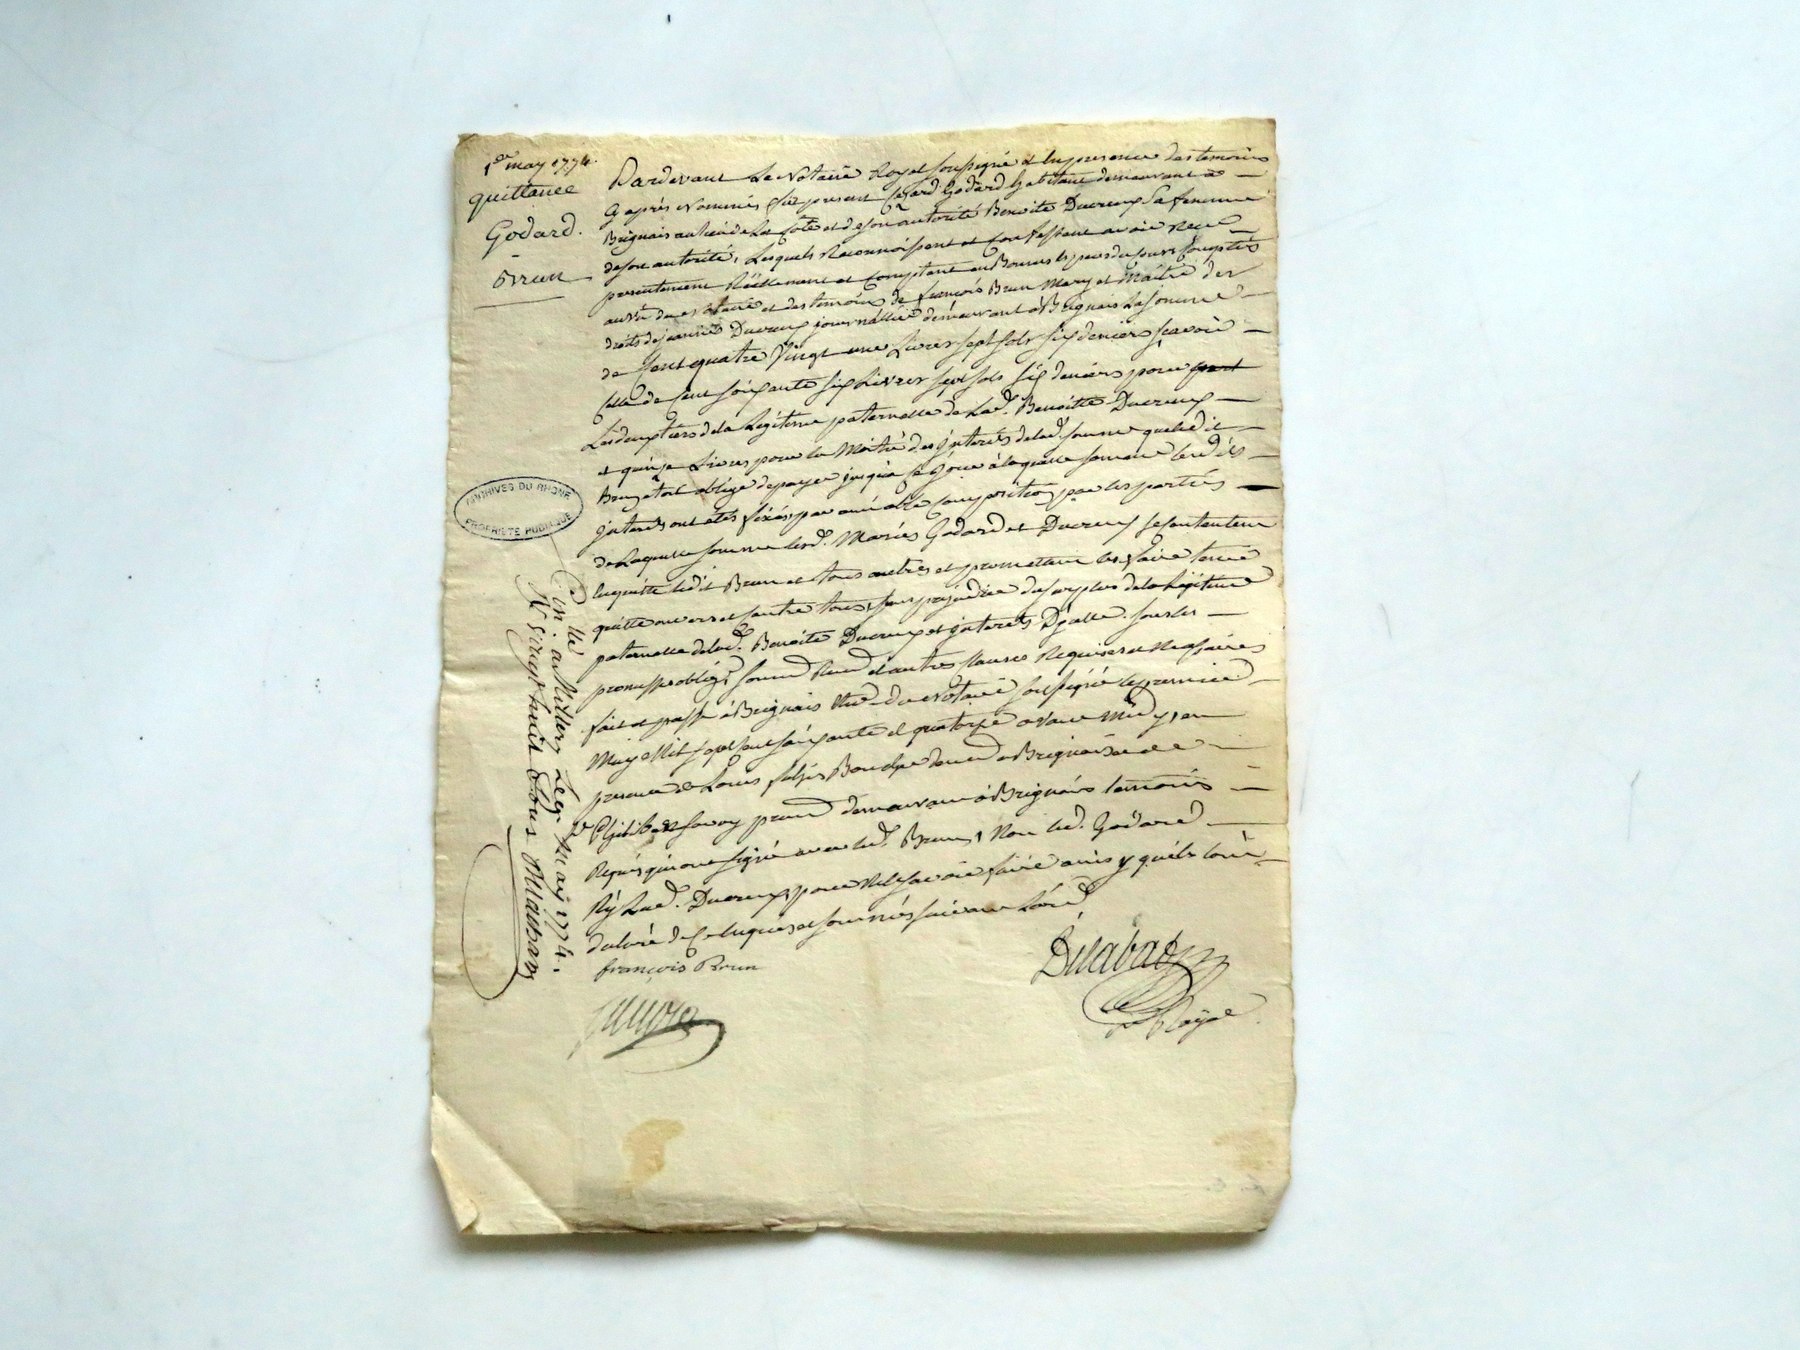 1er may 1774.
quittance
Godard.
Brun
Pardevant Le Notaire Royal soussigné et en presence des temoins
cy après Nommés fut present Godard habitant demeurant a
Brignais au lieu de La Côte et de son autorité Benoite Ducreux sa femme
de son autorité, Lesquels Reconnoissent et Confessent avoir receu
presentement Réellement et comptant en Bonnes especes du cours Comptés
au vû du Notaire et des temoins de françois Brun Mary et Maître des
droits de jeanne Ducreux journallier demeurant à Brignais La somme
de Cent quatre Vingt une Livres sept sols six deniers sçavoir
Celle de Cent soixante six Livres sept sols six deniers pour
Les deux tiers de la Légitime paternelle de Lad. Benoitte Ducreux
et quinze Livres pour la Moitié des jnterets de lad. somme que led
Brun etoit obligé de payer jusqu'à ce jour à laquelle somme lesd
jnterets ont étés fixés par amiable composition par les parties
de Laquelle somme lesd. Mariés Godard et Ducreux se contentent
en quitte led Brun et tous autres et promettent les faire tenir
quitte envers et contre tous, sans prejudice du surplus de la Légitime
paternelle de lad. Benoite Ducreux et jnterets D'jcelle. sous les
promesses oblig. soum Ren et autres Clauses Requises et Necessaires
fait et passé à Brignais Etude du Notaire soussigné le premier
May Mil sept Cent soixante et quatorze avant Midy, en
presence de Louis demt a Brignais et de
Philibert savoy demeurant à Brignais temoins
Requis qui ont signé avec led. Brun, Non led. Godard
Ny Lad. Ducreux, pour Ne le sçavoir faire ainsy qu'ils l'ont
declaré de ce enquis et sommés suivant L'ord
françois Brun
Royal
Con.lé a Millery Le 9e. May 1774.
R vingt huit sous
ARCHIVES DU RHONE
PROPRIETE PUBLIQUE